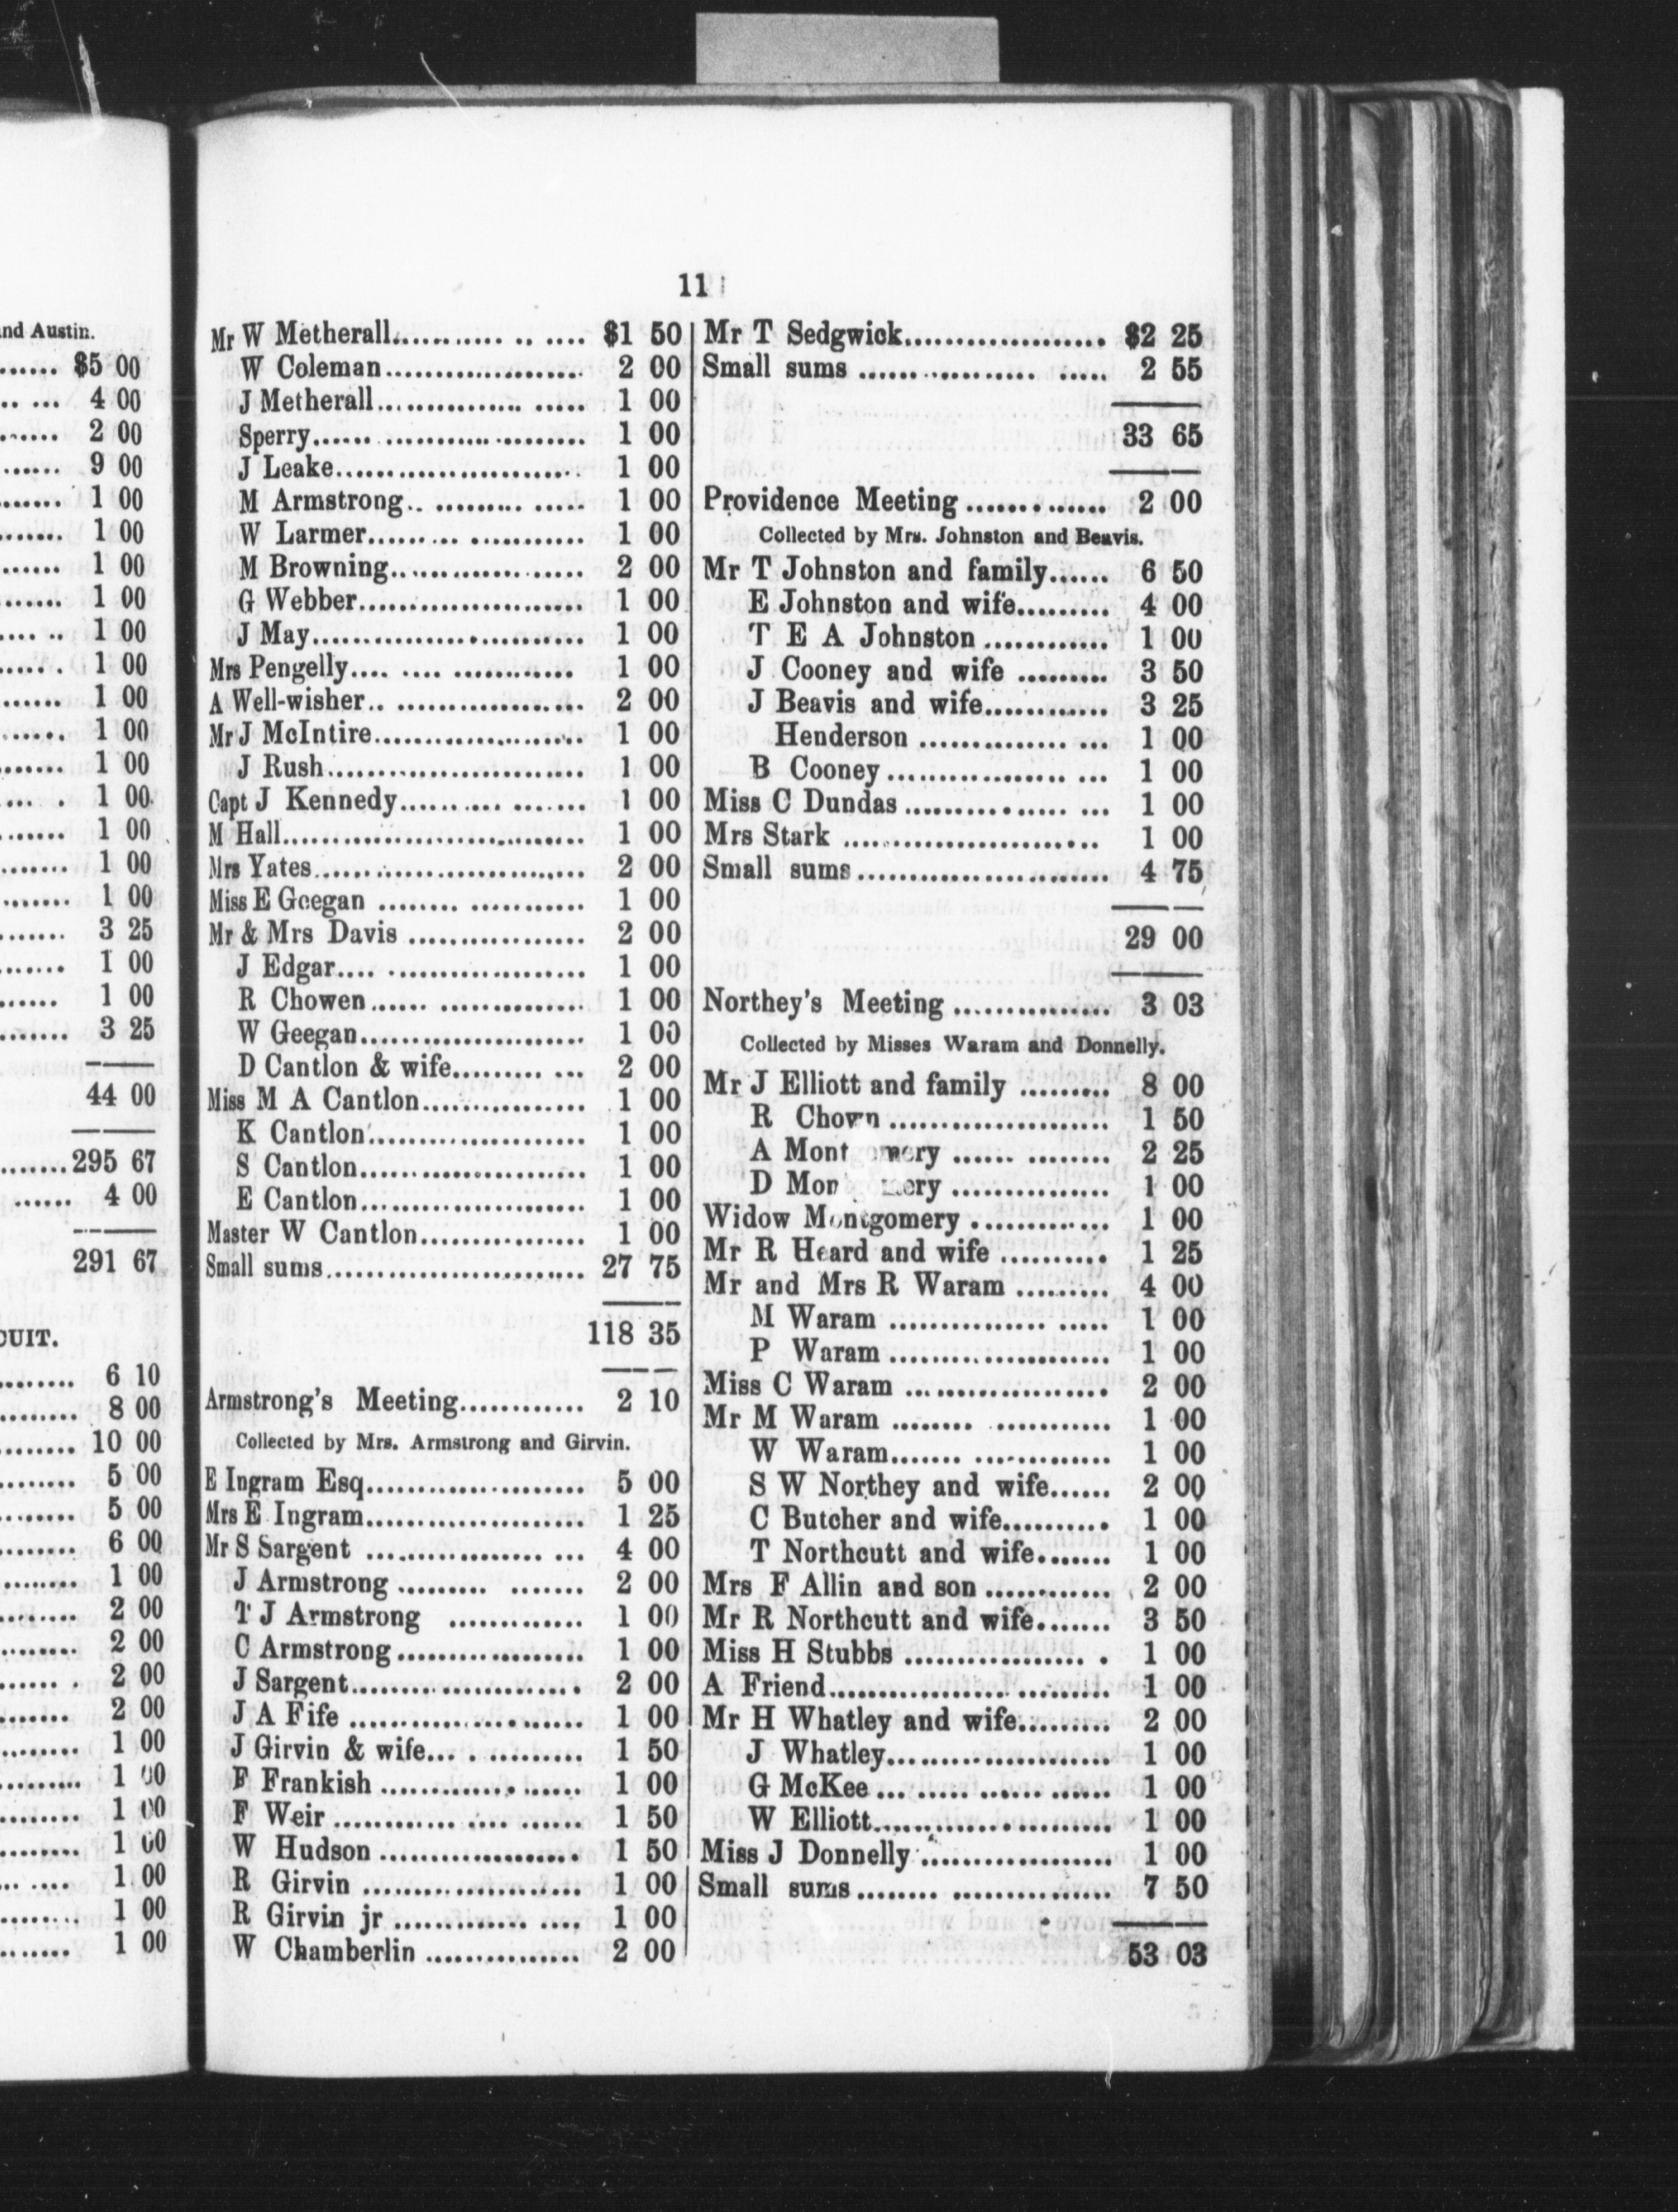 nd Austin.
...... $5 00
.. ... 4 00
...... 2 00
...... 9 00
....... 1 00
....... 1 00
...... 1 00
....... 1 00
.... .. 1 00
...... . 1 00
....... 1 00
...... 1 00
....... 1 00
... . 1 00
....... 1 00
....... 1 00
....... 1 00
....... 3 25
....... 1 00
...... 1 00
....... 3 25
44 00
.......295 67
...... 4 00
291 67
UIT.
........ 6 10
........ 8 00
........ 10 00
........ 5 00
........ 5 00
........ 6 00
........ 1 00
........ 2 00
......... 2 00
...... . 2 00
....... 2 00
......... 1 00
......... 1 00
......... 1 00
......... 1 00
... ..... 1 00
........ 1 00
........ 1 00
11
Mr W Metherall........... .. .... $1 50
W Coleman.................... 2 00
J Metherall............... ..... 1 00
Sperry...... .................... 1 00
J Leake......................... 1 00
M Armstrong.. ......... ..... 1 00
W Larmer......... ............ 1 00
M Browning.................... 2 00
G Webber....................... 1 00
J May........................... 1 00
Mrs Pengelly.... .... ............ 1 00
A Well-wisher.. ................... 2 00
Mr J McIntire..................... 1 00
J Rush.......................... 1 00
Capt J Kennedy.......... ....... 1 00
M Hall.............................. 1 00
Mrs Yates........................... 2 00
Miss E Geegan ........ ........... 1 00
Mr & Mrs Davis .................. 2 00
J Edgar.... .................... 1 00
R Chowen...... ............... 1 00
W Geegan....................... 1 00
D Cantlon & wife......... ... 2 00
Miss M A Cantlon................ 1 00
K Cantlon...................... 1 00
S Cantlon....................... 1 00
E Cantlon....................... 1 00
Master W Cantlon................. 1 00
Small sums.......................... 27 75
118 35
Armstrong's Meeting............ 2 10
Collected by Mrs. Armstrong and Girvin.
E Ingram Esq...................... 5 00
Mrs E Ingram...................... 1 25
Mr S Sargent ................ ... 4 00
J Armstrong ......... ....... 2 00
T J Armstrong ............. 1 00
C Armstrong................... 1 00
J Sargent....................... 2 00
J A Fife ........................ 1 00
J Girvin & wife... . .......... 1 50
F Frankish .................... 1 00
F Weir ............ .... ...... 1 50
W Hudson .................... 1 50
R Girvin ...................... 1 00
R Girvin jr ............. .... 1 00
W Chamberlin ............... 2 00
Mr T Sedgwick.................... $2 25
Small sums .................. ..... 2 55
33 65
Providence Meeting .............. 2 00
Collected by Mrs. Johnston and Beavis.
Mr T Johnston and family...... 6 50
E Johnston and wife......... 4 00
T E A Johnston ............ 1 00
J Cooney and wife ......... 3 50
J Beavis and wife............ 3 25
Henderson .............. ... 1 00
B Cooney.................. ... 1 00
Miss C Dundas ................ ... 1 00
Mrs Stark .......................... 1 00
Small sums......................... 4 75
29 00
Northey's Meeting ............... 3 03
Collected by Misses Waram and Donnelly.
Mr J Elliott and family ......... 8 00
R Chown ...................... 1 50
A Montgomery ...... ........ 2 25
D Montgomery ................ 1 00
Widow Montgomery .............. 1 00
Mr R Heard and wife ........... 1 25
Mr and Mrs R Waram ......... 4 00
M Waram ............... ..... 1 00
P Waram ...................... 1 00
Miss C Waram .................... 2 00
Mr M Waram ........ ............ 1 00
W Waram....... .............. 1 00
S W Northey and wife...... 2 00
C Butcher and wife........... 1 00
T Northcutt and wife....... 1 00
Mrs F Allin and son ............. 2 00
Mr R Northcutt and wife....... 3 50
Miss H Stubbs ................. . 1 00
A Friend................. ......... 1 00
Mr H Whatley and wife......... 2 00
J Whatley...................... 1 00
G McKee ... ..... ...... ...... 1 00
W Elliott........................ 1 00
Miss J Donnelly ................... 1 00
Small sums........ ................ 7 50
53 03